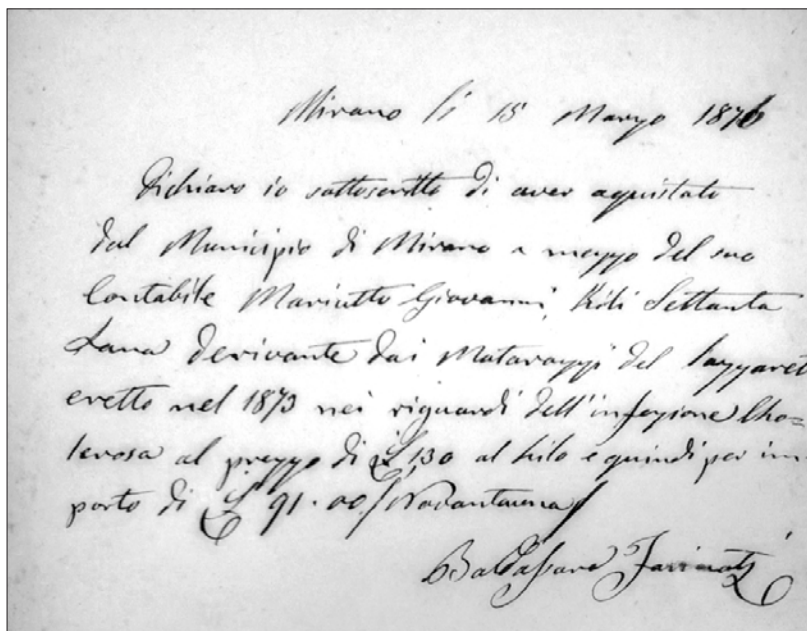 Mirano li 15 Marzo 1876
Dichiaro io sottoscritto di aver aquistato
dal Municipio di Mirano a mezzo del suo
Contabile Mariutto Giovanni, Kili Settanta
Lana derivante dai Matarazzi del Lazzaret
eretto nel 1873 nei riguardi dell'infezione Cho=
lerosa al prezzo di £ 1,30 al kilo e quindi per im
porto di £ 91.00 / Novantauna /
Baldassare